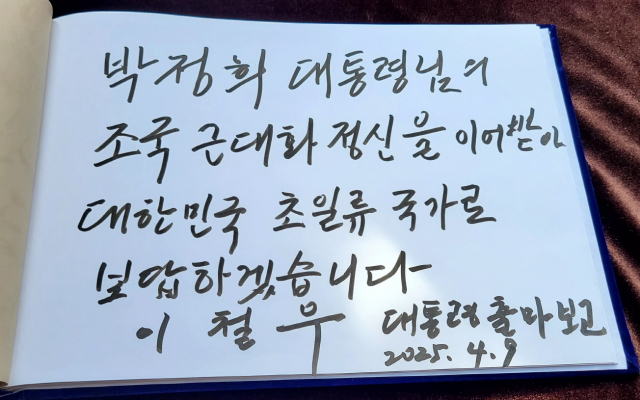 박정희 대통령님의
조국 근대화 정신을 이어받아
대한민국 초일류 국가로
보답하겠습니다
이철우 대통령출마보고
2025. 4. 9